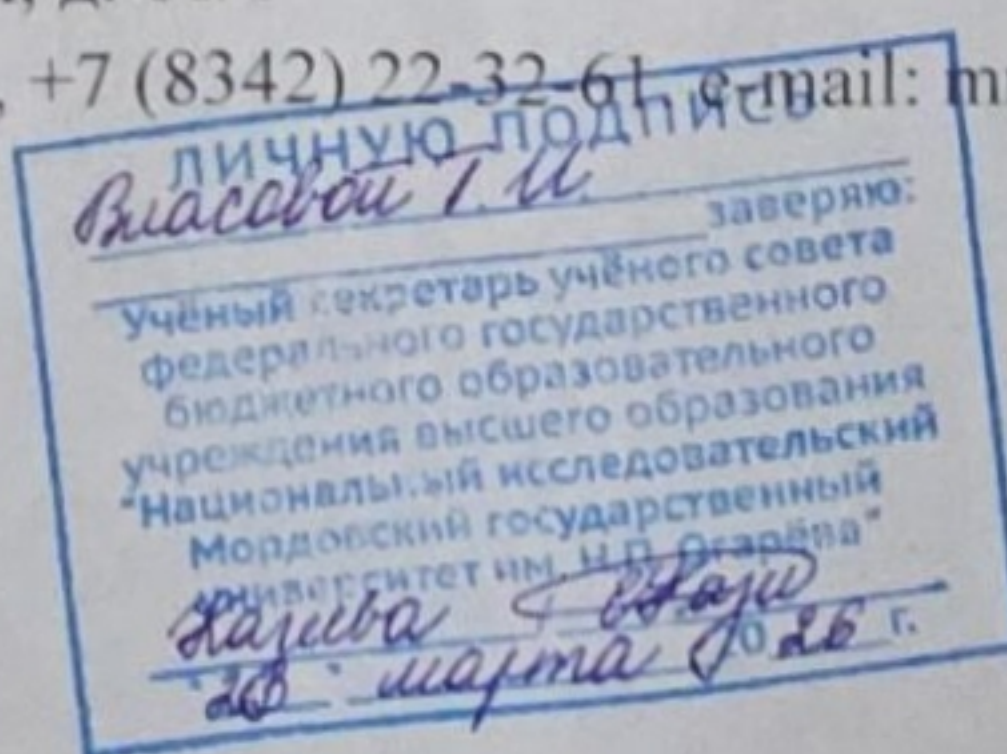 , +7 (8342) 22-32-61, e-mail: m
ЛИЧНУЮ ПОДПИСЬ
Власовой Т. И.
заверяю:
Учёный секретарь учёного совета
федерального государственного
бюджетного образовательного
учреждения высшего образования
"Национальный исследовательский
Мордовский государственный
университет им. Н.П. Огарёва"
марта 2026 г.